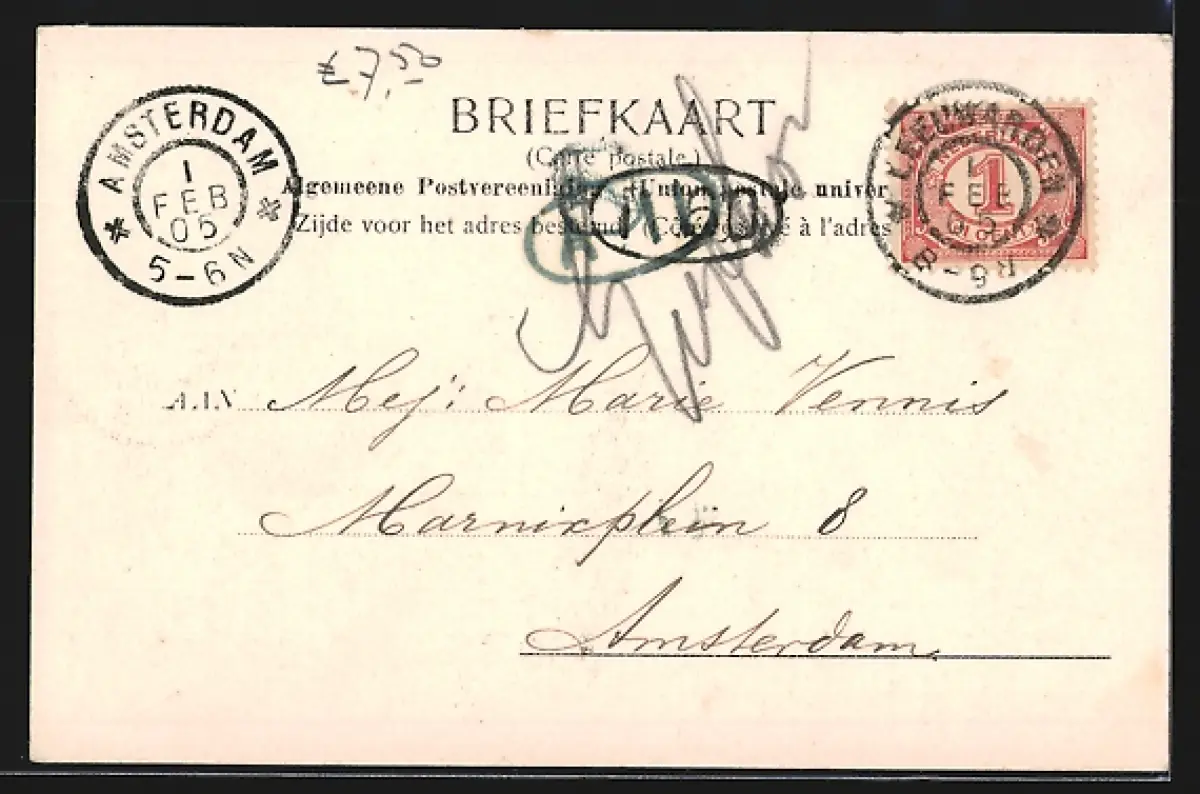 7,50
BRIEFKAART
(Carte postale.)
Algemeene Postvereeniging (Union postale univer
Zijde voor het adres bestemd (Côté à l'adres
AMSTERDAM
1
FEB
05
5-6N
LEEUWARDEN
1
FEB
05
1
AAN Mej: Marie Vennis
Marnixplein 8
Amsterdam.